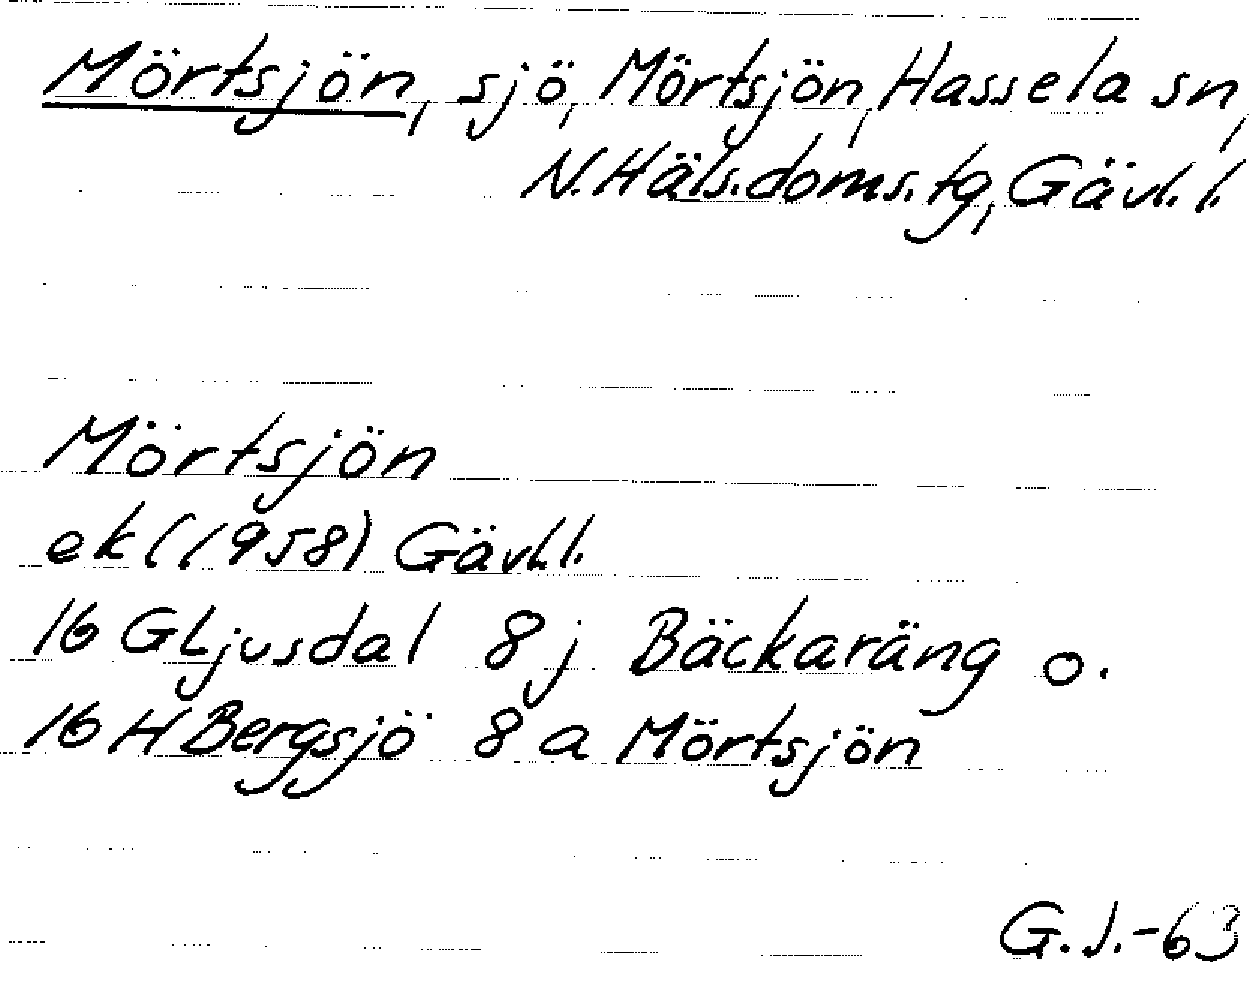 Mörtsjön, sjö, Mörtsjön, Hassela sn,
N. Häls. doms. tg, Gävl. l.
Mörtsjön
ek (1958) Gävl. l.
16 G Ljusdal 8 j Bäckaräng o.
16 H Bergsjö 8 a Mörtsjön
G. J. -63